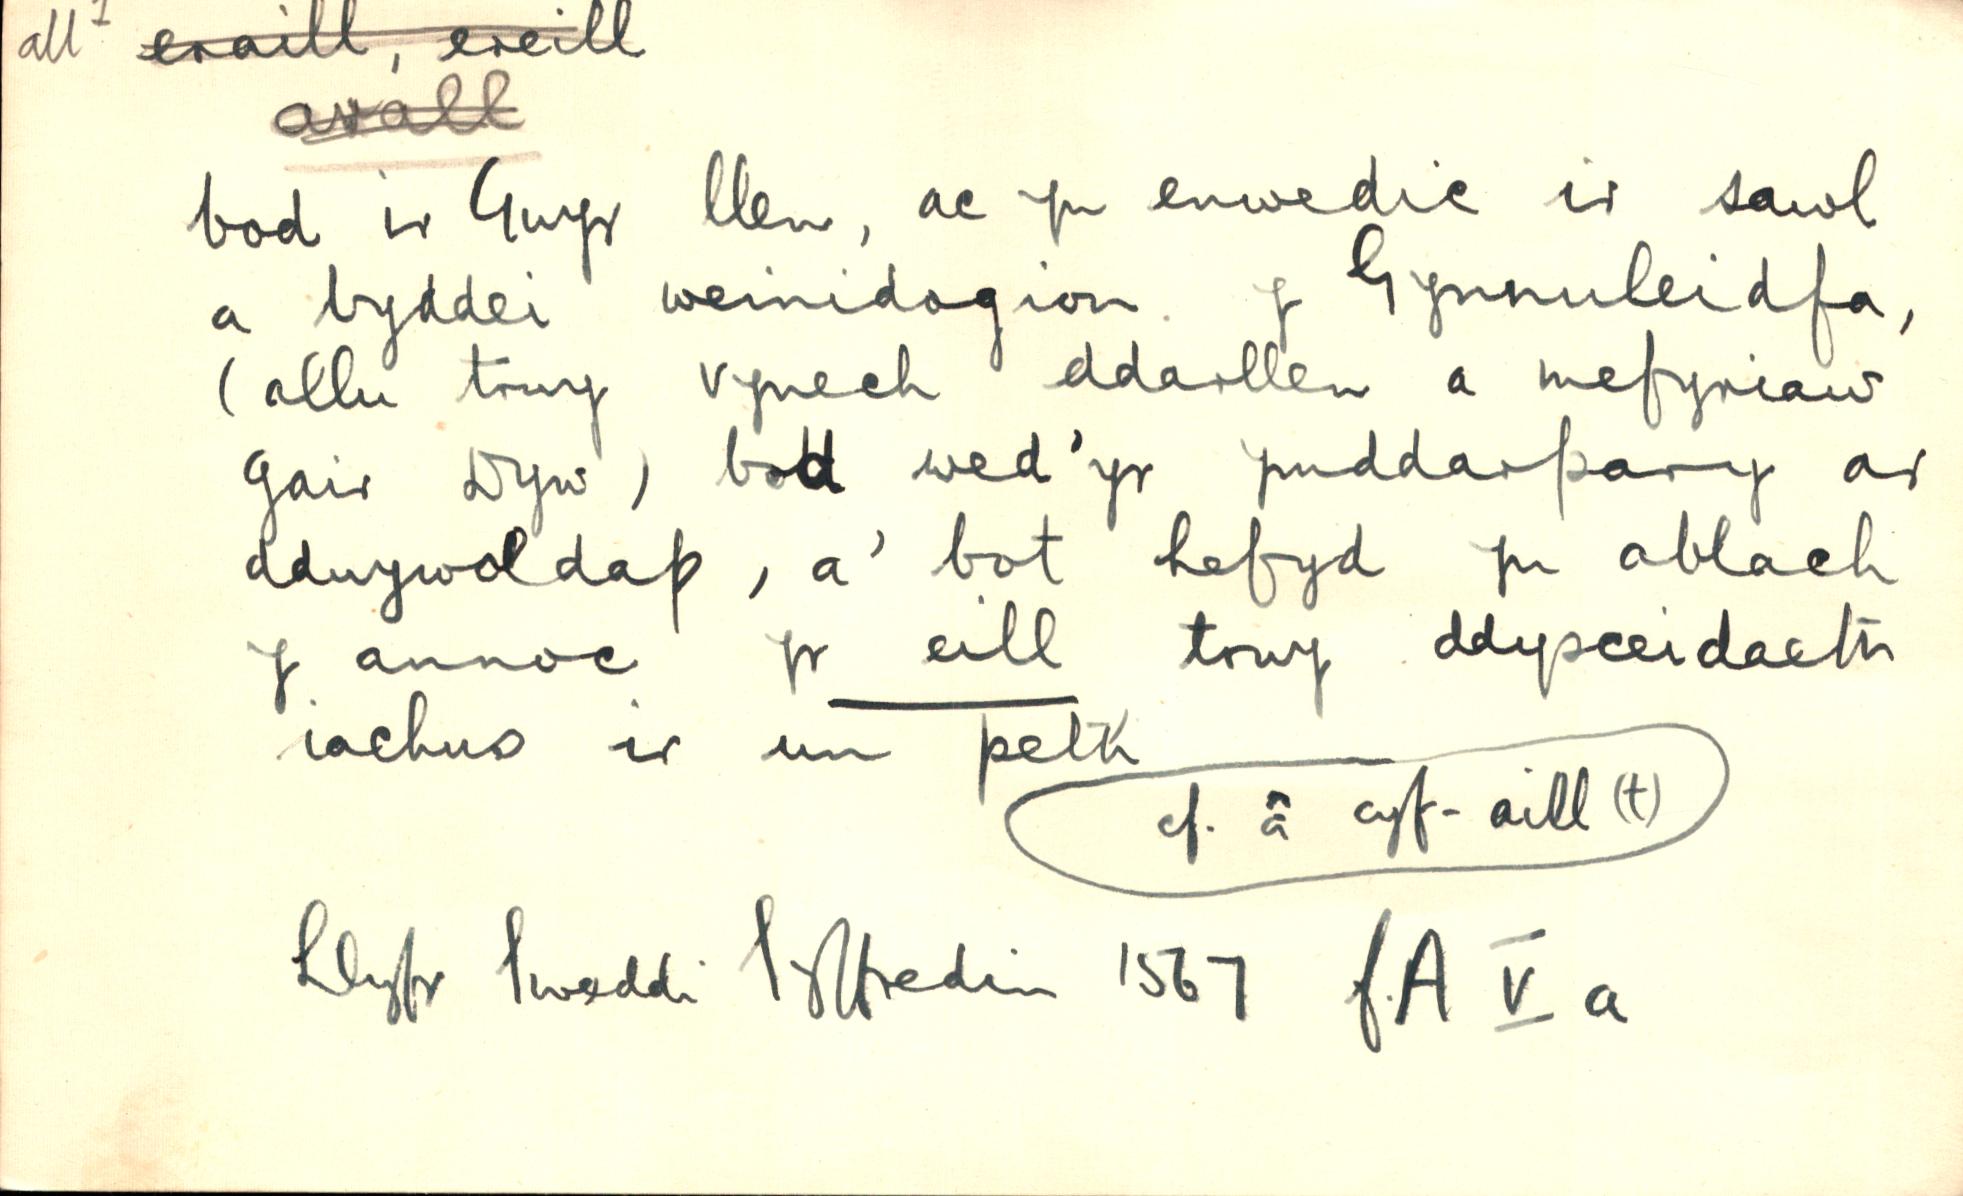 all¹ eraill, ereill
arall
bod ir Gwyr llen, ac yn enwedic ir sawl
a byddei weinidogion y Gynnuleidfa,
(allu trwy vynech ddarllen a mefyriaw
gair Dyw) bod wed'yr ymddarpary ar
ddwywoldap, a' bot hefyd yn ablach
y annoc yr eill trwy ddysceidaeth
iachus ir un peth
cf. â cyf-aill (t)
Llyfr Gweddi Gyffredin 1567 f.A V a